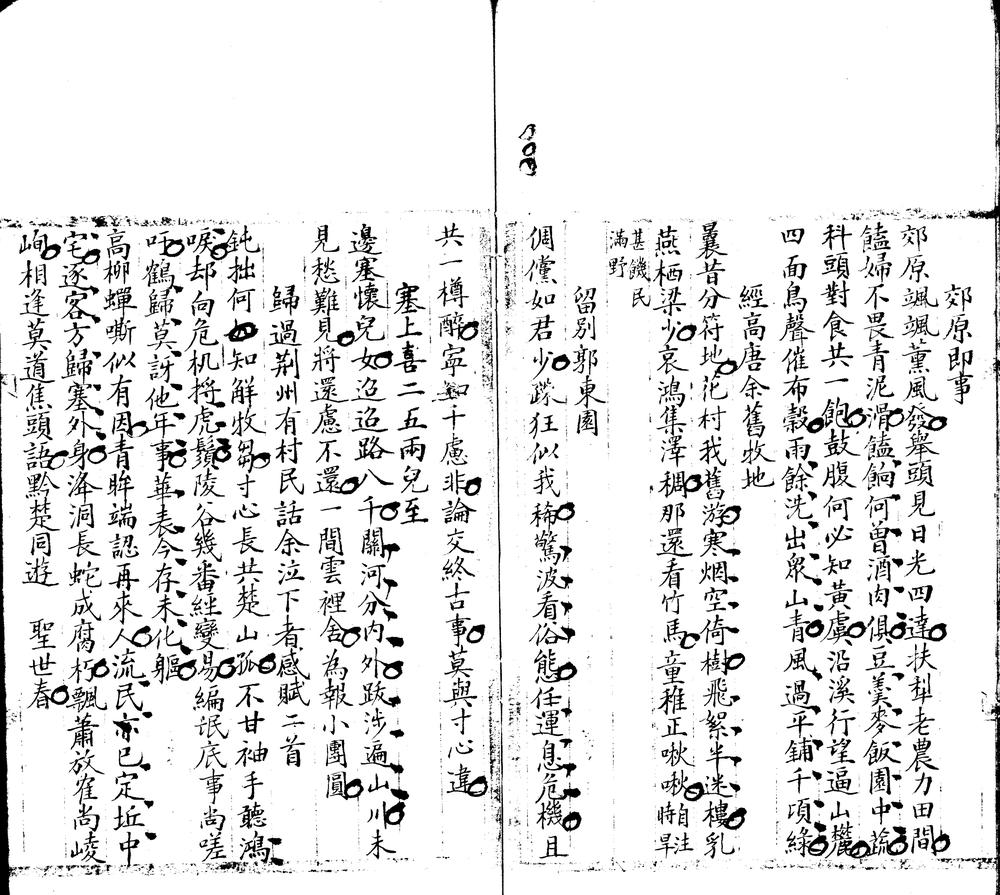 郊原即事
郊原颯颯薰風發舉頭見日光四達扶犁老農力田間
饁婦不畏青泥滑饁餉何曾酒肉俱豆羹麥飯園中蔬
科頭對食共一飽鼓腹何必知黃虞沿溪行望逼山麓
四面鳥聲催布穀雨餘洗出衆山青風過平鋪千頃綠
經高唐余舊牧地
曩昔分符地花村我舊游寒烟空倚樹飛絮半迷樓乳
燕栖梁少哀鴻集澤稠那還看竹馬童稚正啾啾自注時旱
甚饑民
滿野
留别郭東園
倜儻如君少踈狂似我稀驚波看俗態任運息危機且
共一樽醉寧知千慮非論交終古事莫與寸心違
塞上喜二五兩兒至
邊塞懷兒女迢迢路八千關河分内外跋涉遍山川未
見愁難見將還慮不還一間雲裡舍為報小團圓
歸過荆州有村民話余泣下者感賦二首
鈍拙何知解牧芻寸心長共楚山孤不甘袖手聽鴻
唳却向危机捋虎鬚陵谷幾番經變易編氓底事尚嗟
吁鶴歸莫訝他年事華表今存未化軀
高柳蟬嘶似有因青眸端認再來人流民亦已定坵中
宅逐客方歸塞外身洚洞長蛇成腐朽飄蕭放雀尚崚
峋相逢莫道焦頭語黔楚同遊 聖世春